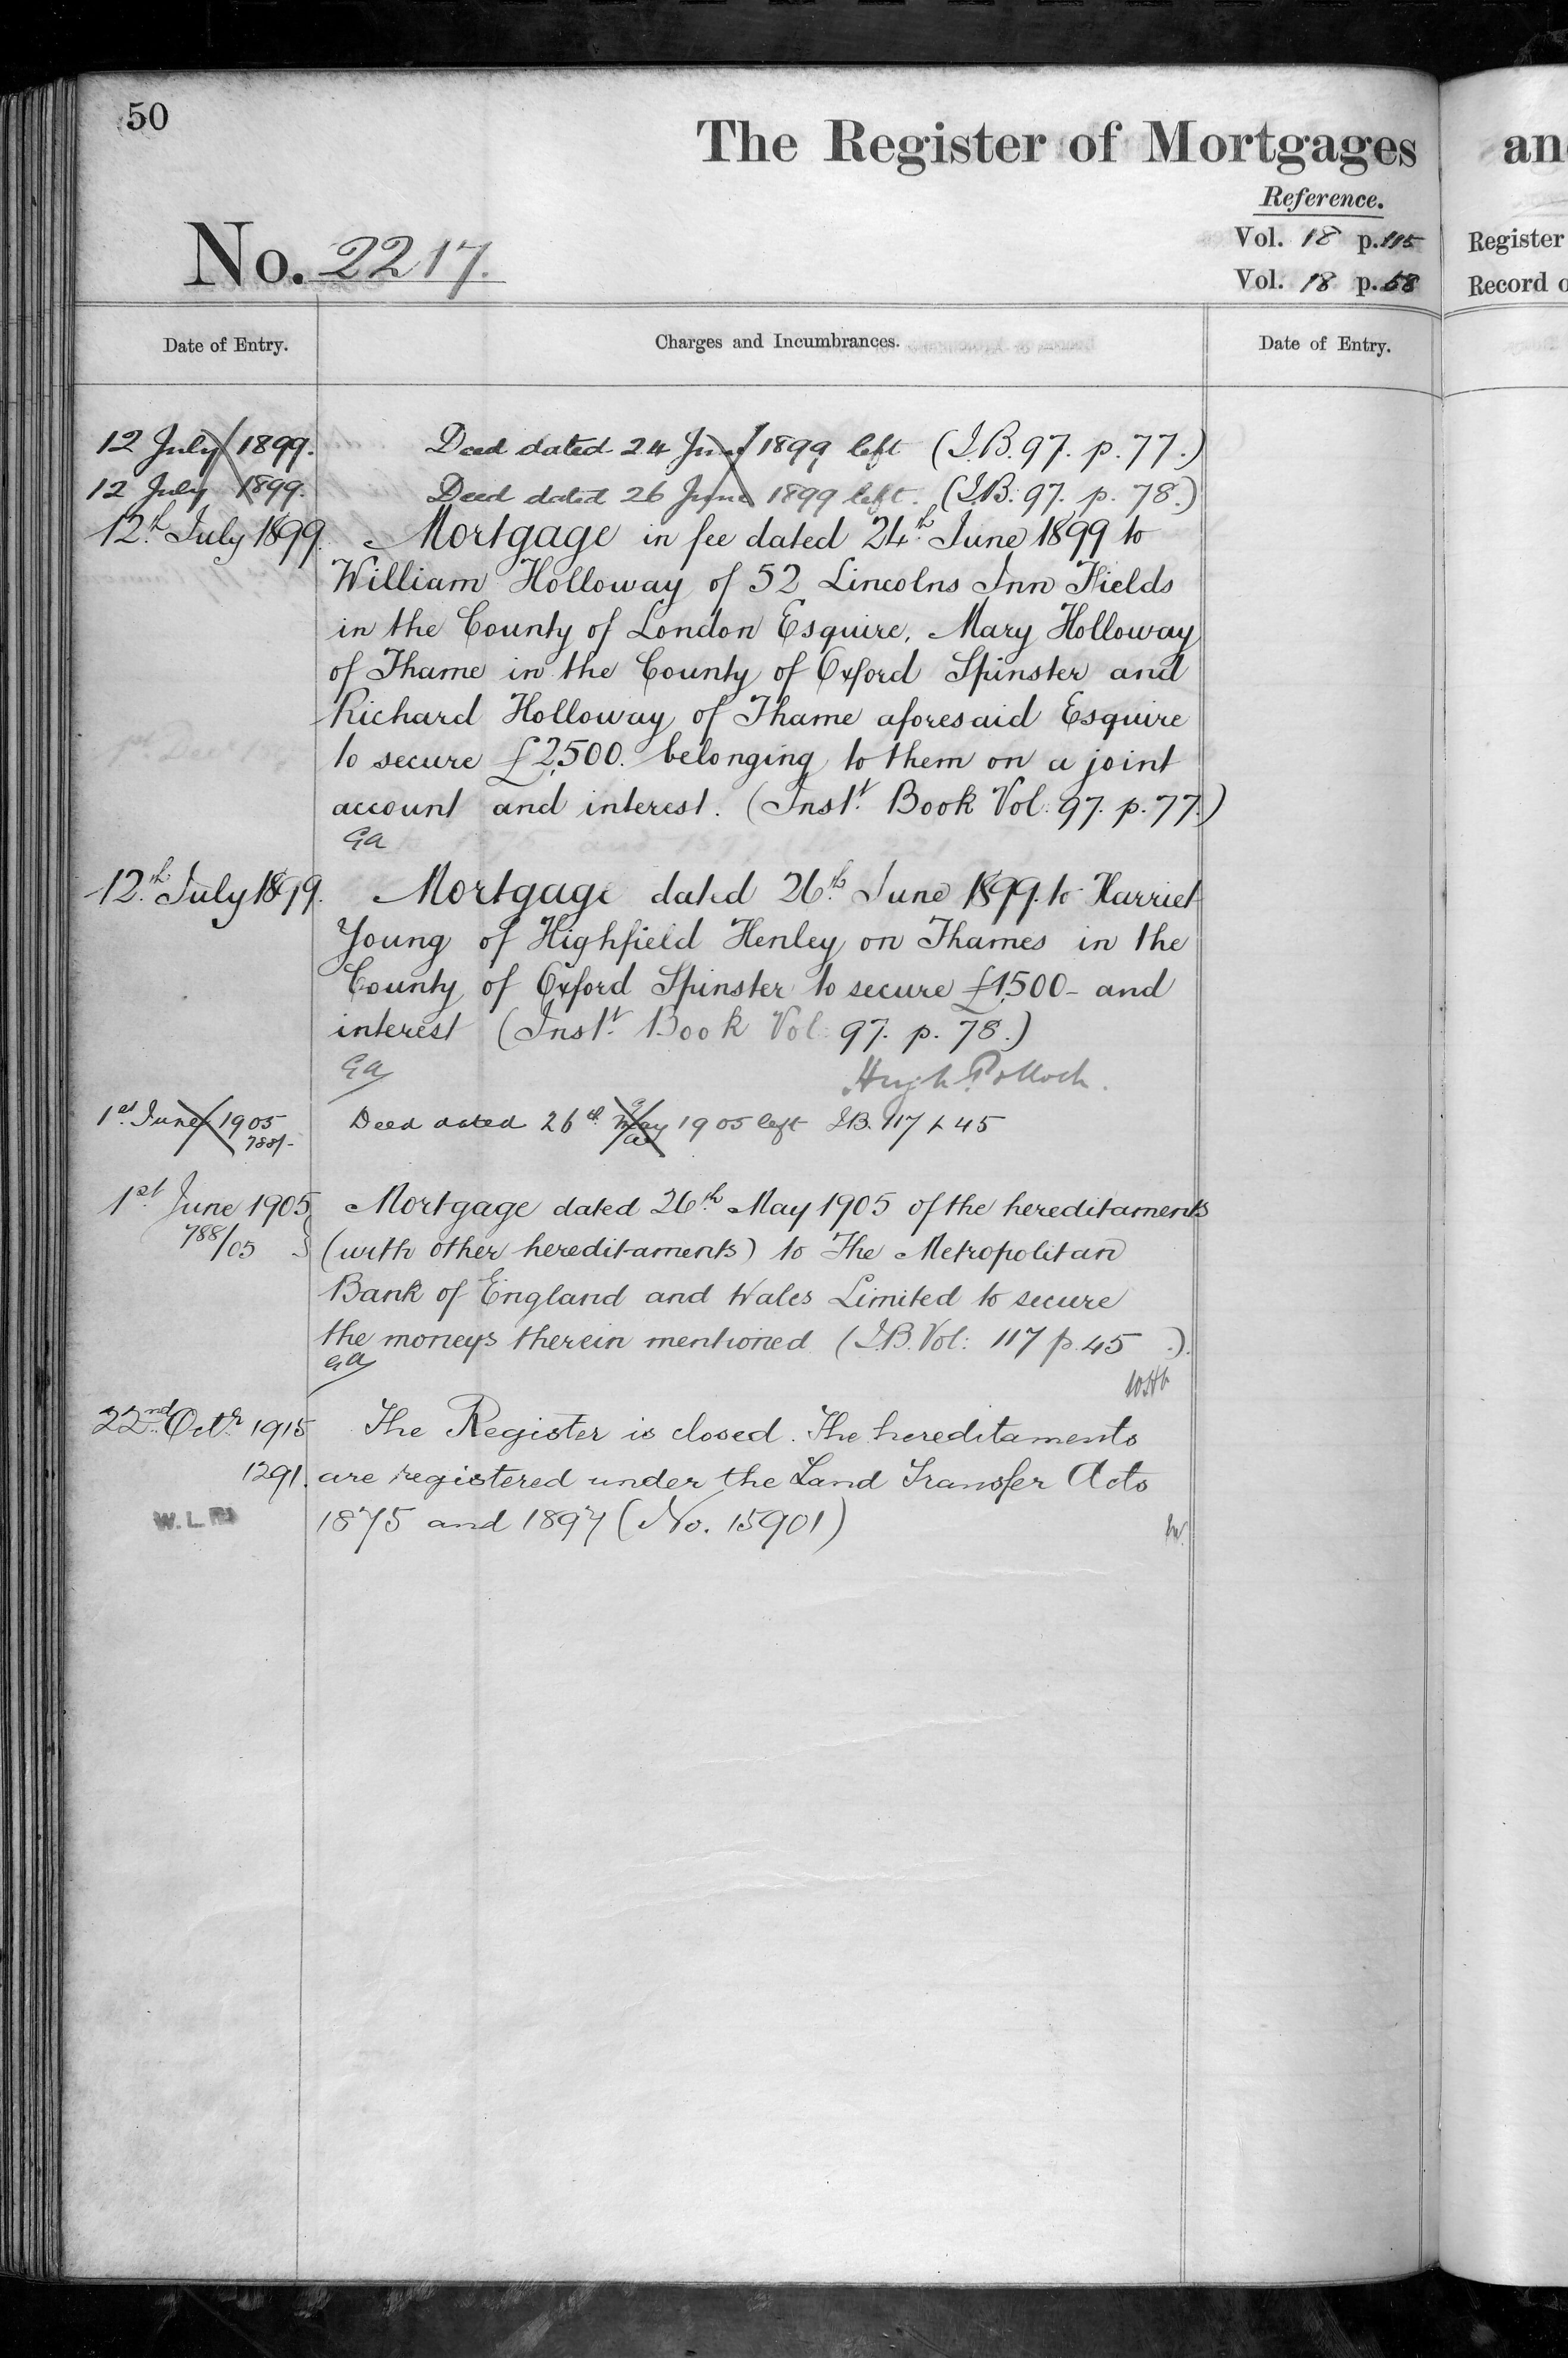 50
The Register of Mortgages
an
Reference.
No. 2217.
Vol. 18 p. 115
Register
Vol. 18 p. 58
Record o
Date of Entry.
Charges and Incumbrances.
Date of Entry.
12 July 1899. Deed dated 24 June 1899 left (I.B. 97. p. 77.)
12 July 1899. Deed dated 26 June 1899 left. (I.B. 97. p. 78.)
12th July 1899. Mortgage in fee dated 24th June 1899 to
William Holloway of 52 Lincolns Inn Fields
in the County of London Esquire, Mary Holloway
of Thame in the County of Oxford Spinster and
Richard Holloway of Thame aforesaid Esquire
to secure £2,500. belonging to them on a joint
account and interest. (Inst. Book Vol: 97. p. 77.)
GA
12th July 1899. Mortgage dated 26th June 1899. to Harriet
Young of Highfield Henley on Thames in the
County of Oxford Spinster to secure £1,500 - and
interest (Inst. Book Vol: 97. p. 78.)
GA
Hugh Pollock.
1st June 1905 Deed dated 26th May 1905 left I.B. 117 p 45
1st June 1905 Mortgage dated 26th May 1905 of the hereditaments
788/05 (with other hereditaments) to The Metropolitan
Bank of England and Wales Limited to secure
the moneys therein mentioned (I.B. Vol: 117 p. 45 ).
GA
22nd Octr 1915 The Register is closed. The hereditaments
1291. are registered under the Land Transfer Acts
W.L.
1875 and 1897 (No. 15901)